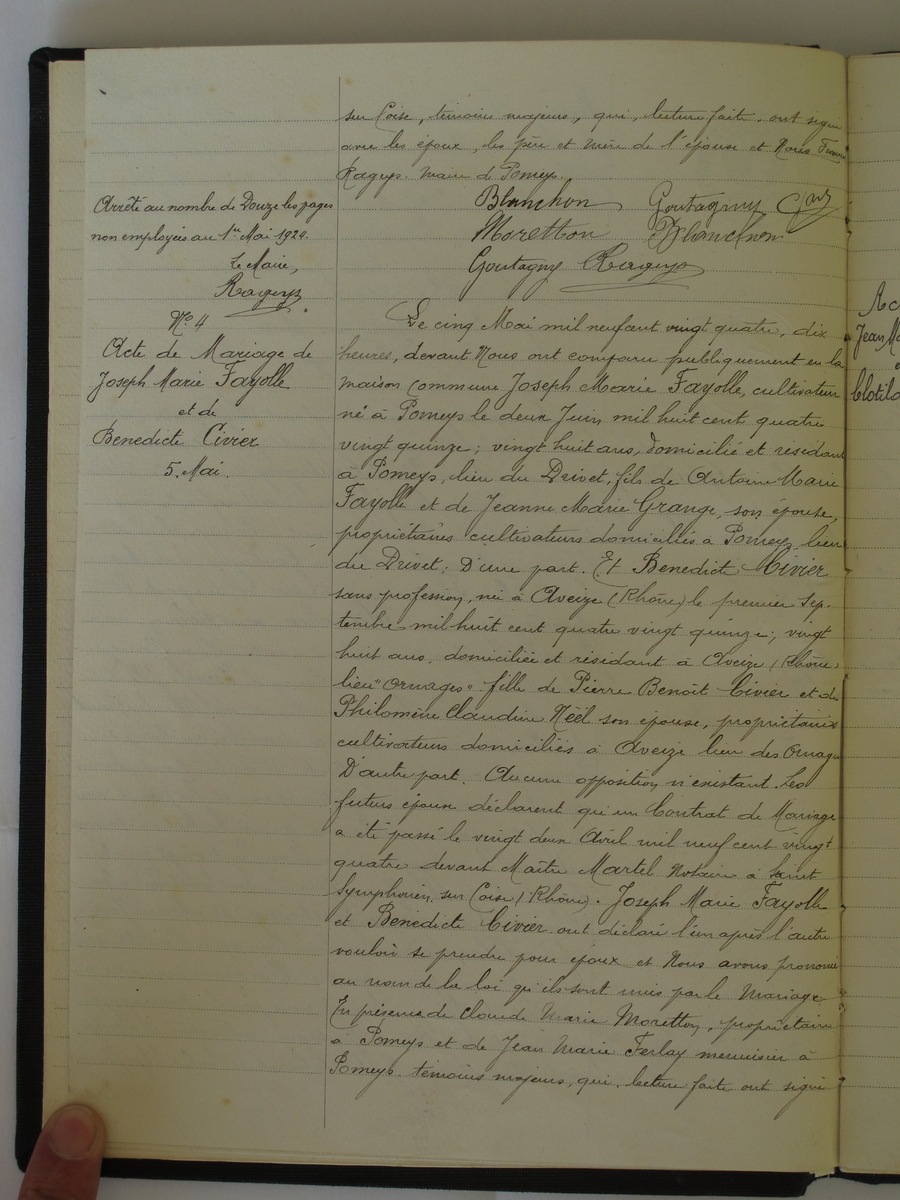 sur Coise, témoins majeurs, qui, lecture faite, ont signé
avec les époux, les père et mère de l'épouse et Nous
Ragey. Maire de Pomeys.
Blanchon Goutagny
Moretton Blanchon
Goutagny Rageys
Arrêté au nombre de Douze les pages
non employées au 1er Mai 1924.
Le Maire,
Rageys
No 4
Acte de Mariage de
Joseph Marie Fayolle
et de
Benedicte Civier
5. Mai.
Le cinq Mai mil neuf cent vingt quatre, dix
heures, devant Nous ont comparu publiquement en la
maison commune Joseph Marie Fayolle, cultivateur
né à Pomeys le deux Juin mil huit cent quatre
vingt quinze; vingt huit ans, domicilié et résidant
à Pomeys, lieu du Drivet, fils de Antoine Marie
Fayolle et de Jeanne Marie Grange, son épouse,
propriétaires cultivateurs domiciliés à Pomeys lieu
du Drivet; D'une part. Et Benedicte Civier
sans profession, née à Aveize (Rhône) le premier Sep-
tembre mil huit cent quatre vingt quinze; vingt
huit ans, domiciliée et résidant à Aveize (Rhône)
lieu "Ornages" fille de Pierre Benoît Civier et de
Philomène Claudine Néel son épouse, propriétaires
cultivateurs domiciliés à Aveize lieu des Ornages
D'autre part. Aucune opposition n'existant. Les
futurs époux déclarent qu'un Contrat de Mariage
a été passé le vingt deux Avril mil neuf cent vingt
quatre devant Maître Martel Notaire à Saint
Symphorien sur Coise (Rhône). Joseph Marie Fayolle
et Benedicte Civier ont déclaré l'un après l'autre
vouloir se prendre pour époux et Nous avons prononcé
au nom de la loi qu'ils sont unis par le Mariage
En présence de Claude Marie Moretton, propriétaire
à Pomeys et de Jean Marie Ferlay menuisier à
Pomeys. témoins majeurs, qui, lecture faite ont signé
Jean Ma